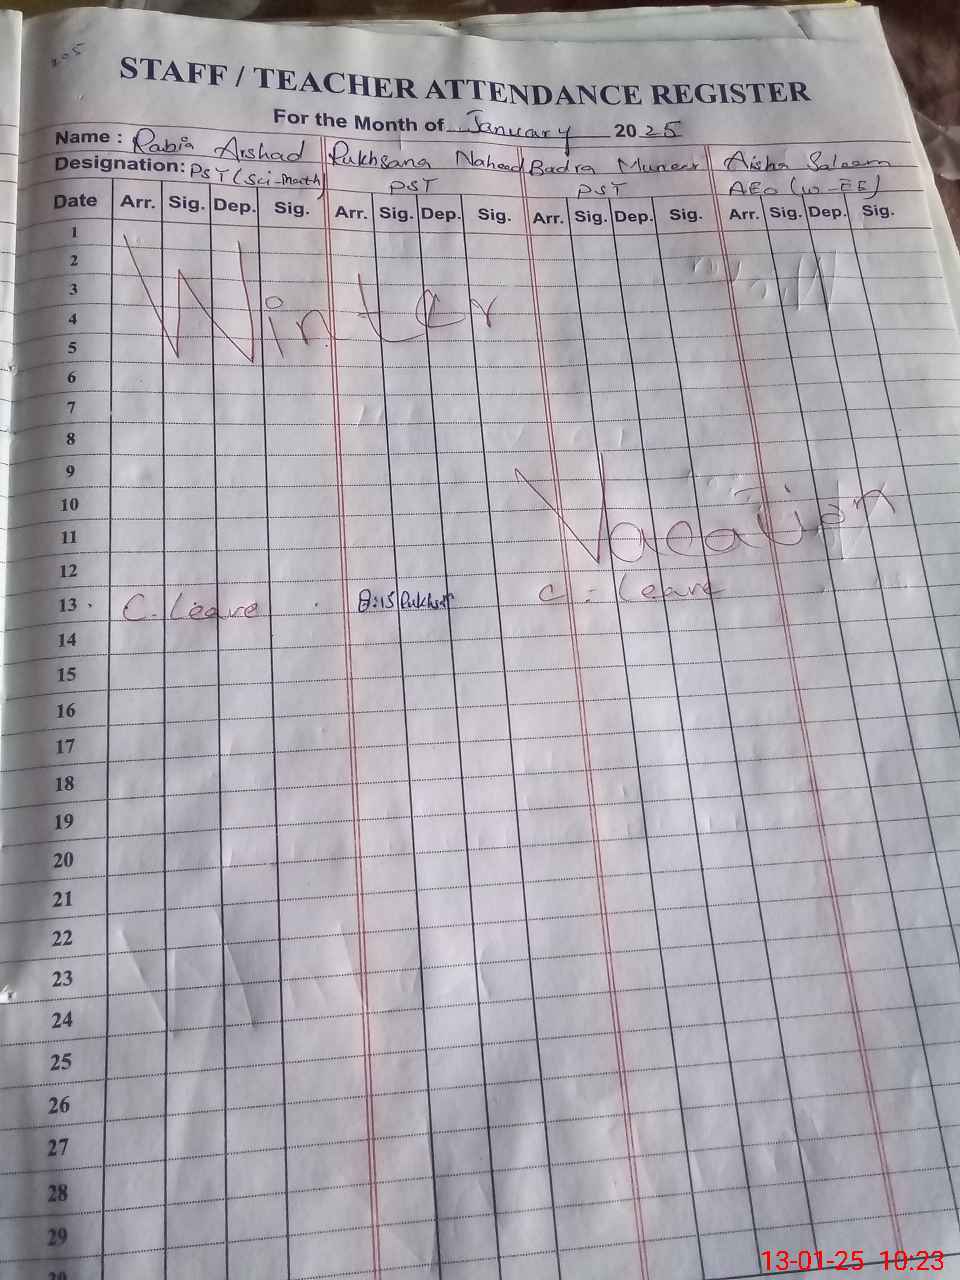 205
STAFF / TEACHER ATTENDANCE REGISTER
For the Month of January 2025
Name : Rabia Arshad Rukhsana Naheed Badra Muneer Aisha Saleem
Designation: PST (Sci-Math) PST PST AEO (W-EE)
Date Arr. Sig. Dep. Sig. Arr. Sig. Dep. Sig. Arr. Sig. Dep. Sig. Arr. Sig. Dep. Sig.
1
2
3
Winter
4
5
6
7
8
9
10
Vacation
11
12
13 C. Leave 8:15 C. Leave
14
15
16
17
18
19
20
21
22
23
24
25
26
27
28
29
30
13-01-25 10:23